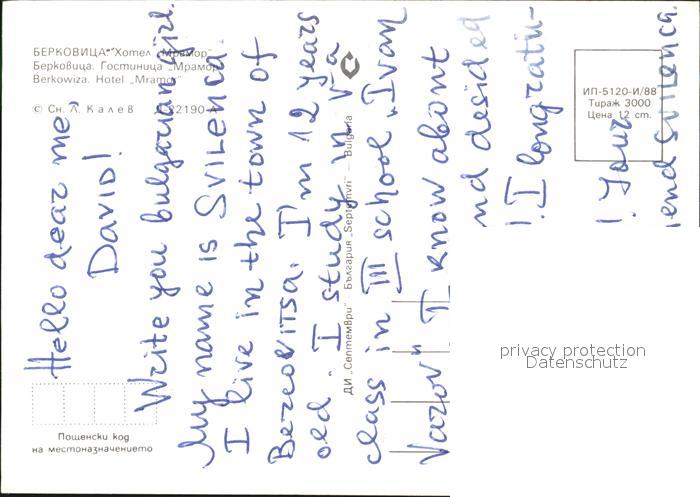 БЕРКОВИЦА. Хотел „Мрамор"
Берковица. Гостиница „Мрамор"
Berkowiza. Hotel „Mramor"
© Сн. Л. Калев 22190-А
Hello dear me,
David!
Write you bulgarian girl.
My name is Svilenca.
I live in the town of
Bercovitsa. I'm 12 years
old. I study in V-a
class in III school „Ivan
Vazov" I know abont
nd desided
! I congratu-
! Your
iend Svilenca.
ДИ „Септември" България „Septemvri" Bulgaria
ИП-5120-И/88
Тираж 3000
Цена 12 ст.
Пощенски код
на местоназначението
privacy protection
Datenschutz